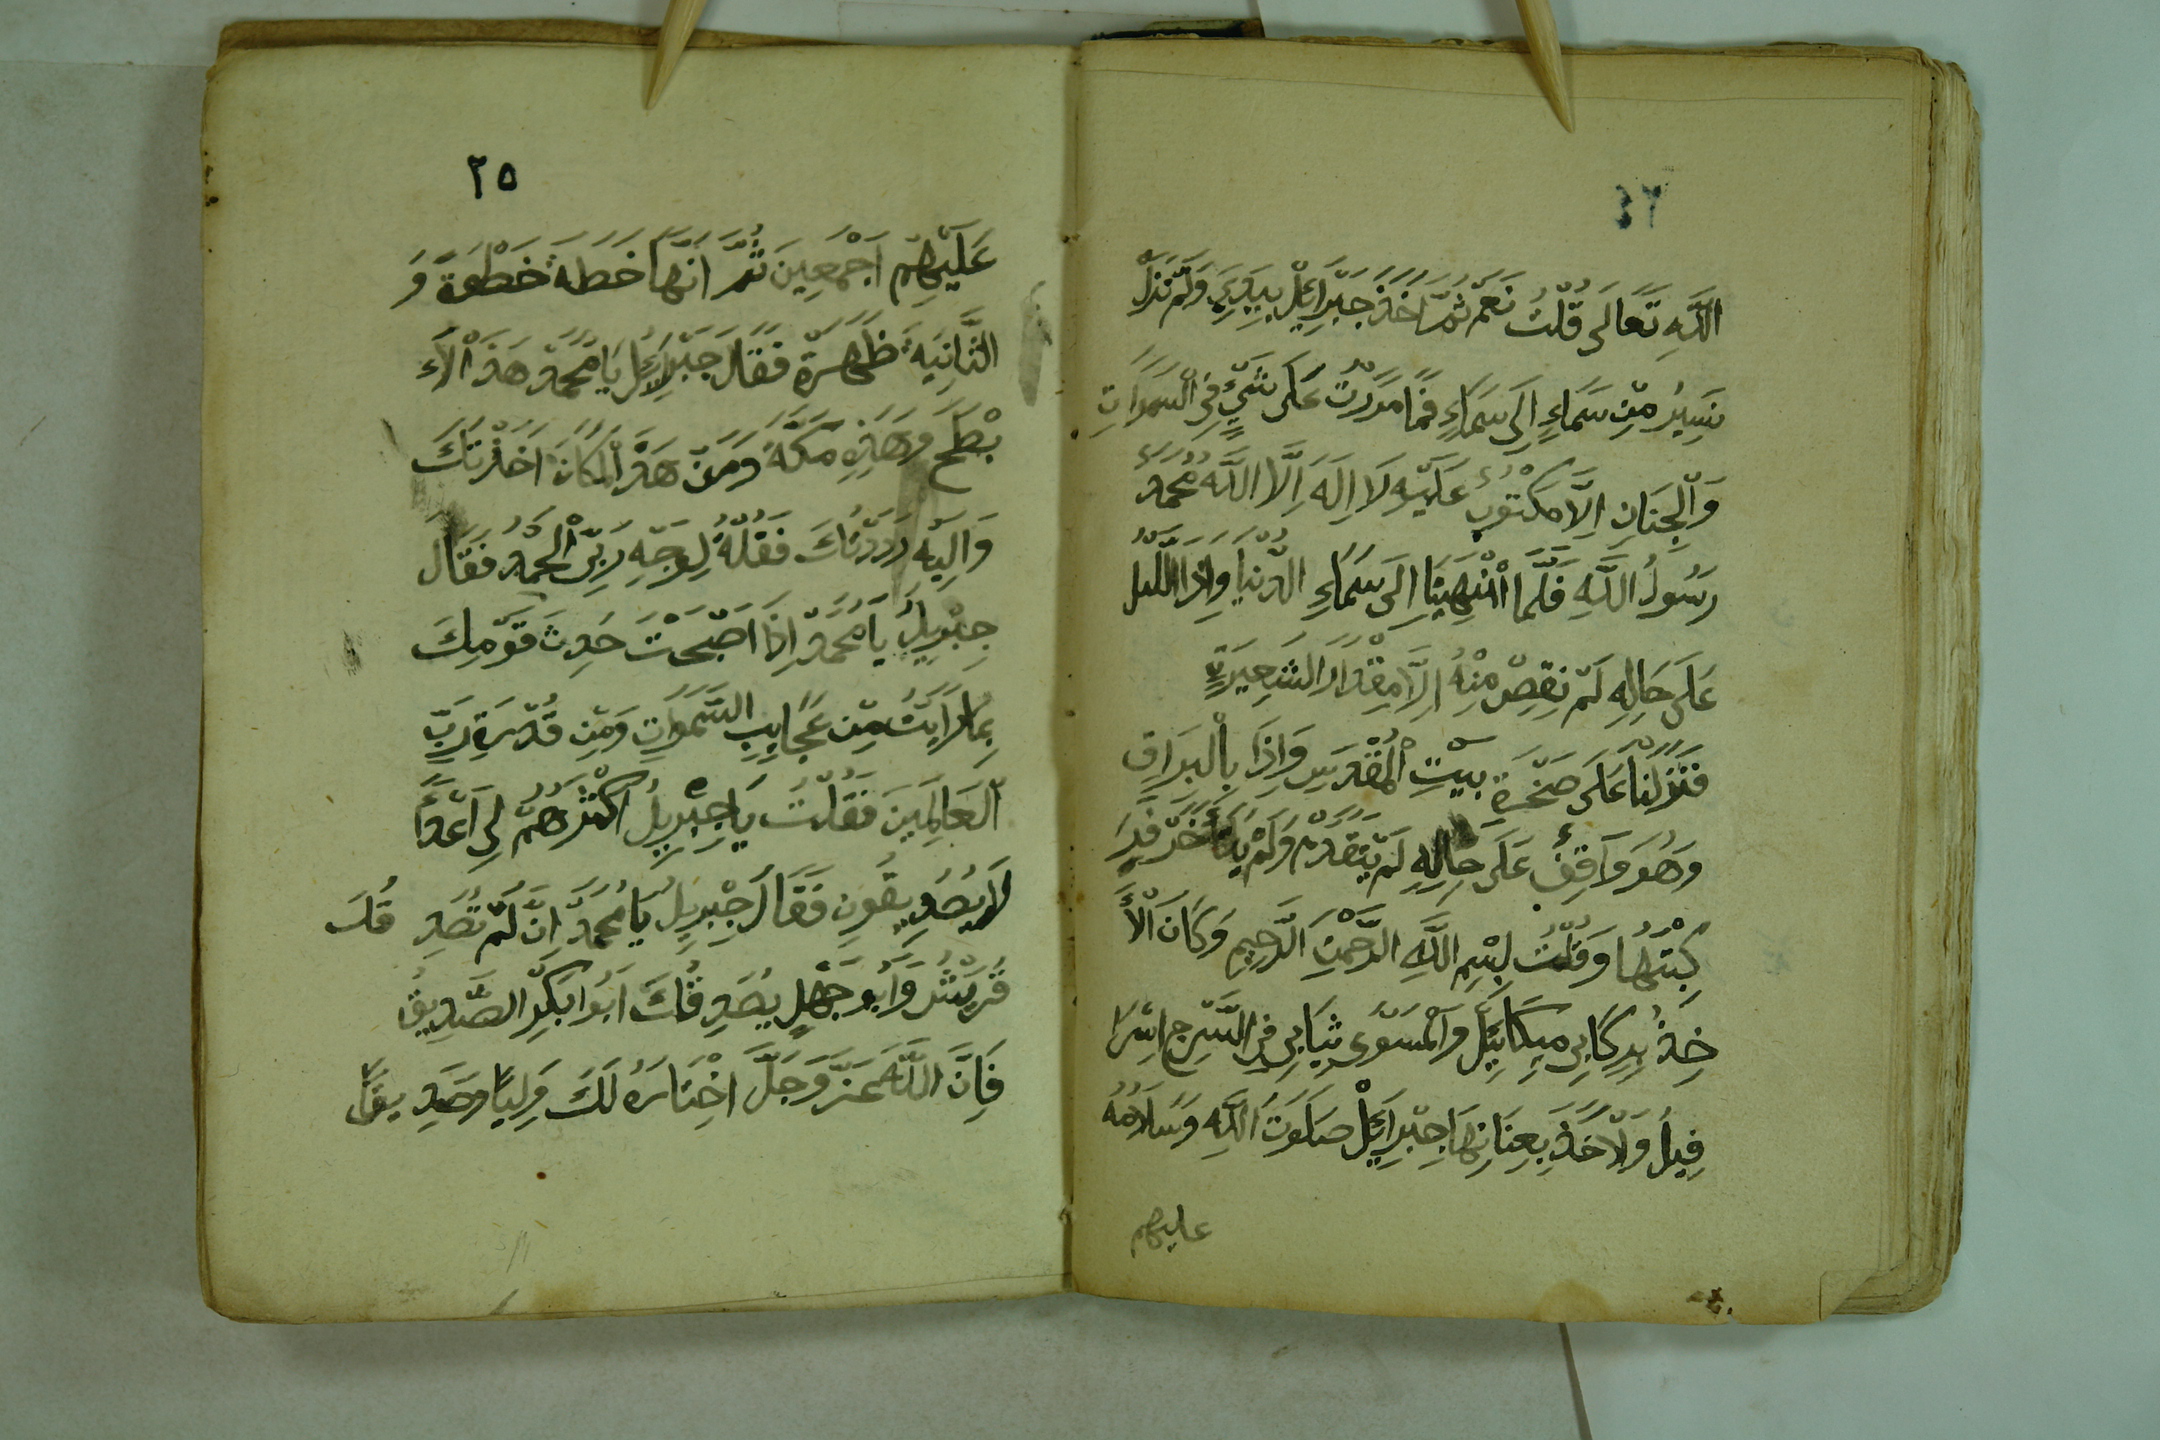 ٢٤
اللَّهِ تَعَالَى قُلْتُ نَعَمْ ثُمَّ اَخَذَ جَبْرَائِلْ بِيَدِي وَلَمْ نَزَلْ
نَسِيرُ مِنْ سَمَاءٍ اِلَى سَمَاءٍ فَمَا مَرَرْتُ عَلَى شَيْءٍ فِى السَّمَوَاتِ
وَالْجِنَانِ اِلَّا مَكْتُوبٌ عَلَيْهِ لَا اِلَهَ اِلَّا اللَّهُ مُحَمَّدٌ
رَسُولُ اللَّهِ فَلَمَّا انْتَهَيْنَا اِلَى سَمَاءِ الدُّنْيَا وَاِذَا اللَّيْلُ
عَلَى حَالِهِ لَمْ نَقِصْ مِنْهُ اِلَّا مِقْدَارَ الشَعِيرَةٍ
فَنَزَلْنَا عَلَى صَخْرَةِ بَيْتِ الْمُقْدَسِ وَاِذَا بِالْبَرَاقِ
وَهُوَ وَاقِفٌ عَلَى حَالِهِ لَمْ يَتَقَدَّمْ وَلَمْ يَتَأَخَّرْ فَرَ
كِبْتُهَا وَقُلْتُ بِسْمِ اللَّهِ الرَّحْمَنِ الرَّحِيمِ وَكَانَ الْأَ
خِذُ بِرِكَابِي مِيكَائِيلَ وَالْمُسَوِّى ثِيَابِي فِى السَّرْجِ اِسْرَا
فِيلُ وَلْاَخَذَ بِعِنَانِهَا جِبْرَائِلْ صَلَوَتُ اللَّهِ وَسَلَامُهُ
عليهم
٢٥
عَلَيْهِمْ اَجْمَعِينَ ثُمَّ اَنَّهَا خَطَةْ خَطْوَةً وَ
الثَّانِيَهْ ظَهِرَةْ فَقَالَ جَبْرَائِلُ يَا مُحَمَّدْ هَذَ الْأَ
بْطَحَ وَهَذِهِ مَكَّةْ وَمَنْ هَذَ الْمَكَانَ اَخَذْتُكَ
وَالِيْهِ رَدَدْتُكَ فَقُلْةُ لِوَجْهِ رَبِّى الْحَمْدُ فَقَالَ
جِبْرِيلُ يَا مُحَمَّدْ اِذَا اَصْبَحْتَ حَدِثَ قَوْمِكَ
بِمَا رَاَيْتُ مِنْ عَجَايِبِ السَّمَوَاتِ وَمِنْ قُدْرَةِ رَبِّ
الْعَالَمِينَ فَقَلْتُ يَا جِبْرِيلُ اَكْثَرُهُمْ لِى اَعْدًا
لَا يُصَدِيقُونِ فَقَالَ جِبْرِيلُ يَا مُحَمَّدْ اِنْ لَمْ تُصَدِ قُكَ
قُرَيْشٌ وَاَبُو جَهْلٍ يُصَدِقُكَ اَبُوا بَكْرِ الصِّدِيقُ
فَاِنَّ اللَّهَ عَزَّ وَجَلَّ اَخْتَارَهُ لَكَ وَلِيًا وَصَدِيقًا